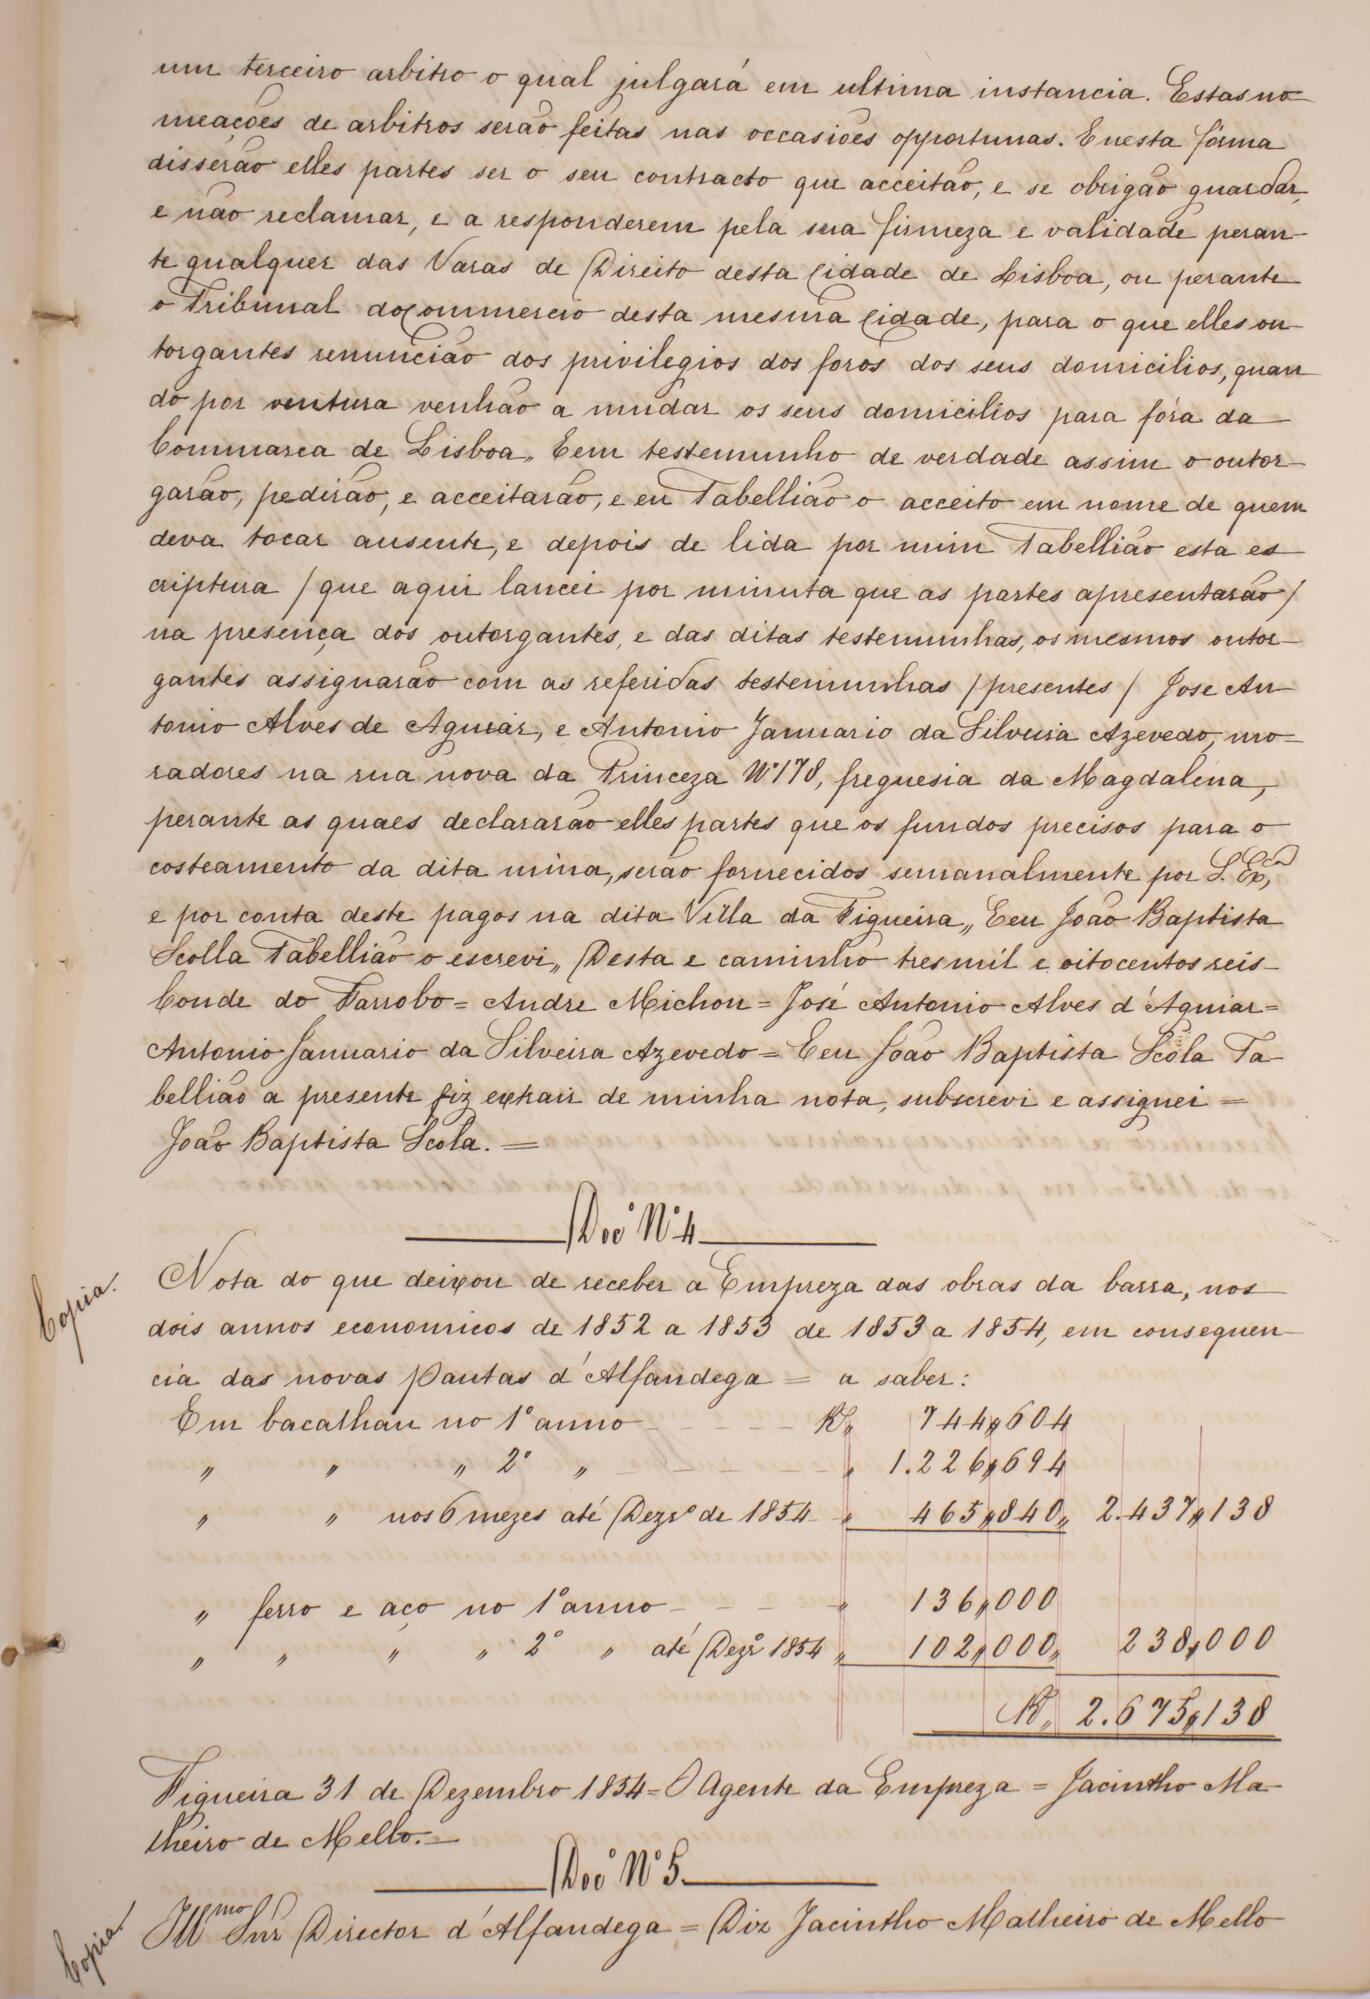 um terceiro arbitro o qual julgará em ultima instancia. Estas no-
meações de arbitros serão feitas nas occasiões opportunas. E nesta fórma
disserão elles partes ser o seu contracto que acceitão, e se obrigão guardar,
e não reclamar, e a responderem pela sua firmeza e validade peran-
te qualquer das Varas de Direito desta Cidade de Lisboa, ou perante
o Tribunal do Commercio desta mesma Cidade, para o que elles ou-
torgantes renuncião dos privilegios dos foros dos seus domicilios, quan
do por ventura venhão a mudar os seus domicilios para fóra da
Commarca de Lisboa„ E em testemunho de verdade assim o outor-
garão, pedirão, e acceitarão, e eu Tabellião o acceito em nome de quem
deva tocar ausente, e depois de lida por mim Tabellião esta es
criptura / que aqui lancei por minuta que as partes apresentarão /
na presença dos outorgantes, e das ditas testemunhas, os mesmos outor-
gantes assignarão com as referidas testemunhas / presentes / Jose An-
tonio Alves de Aguiar, e Antonio Januario da Silveira Azevedo, mo-
radores na rua nova da Princeza Nº 178, freguesia da Magdalena,
perante as quaes declararão elles partes que os fundos precisos para o
costeamento da dita mina, serão fornecidos semanalmente por S. Exª,
e por conta deste pagos na dita Villa da Figueira„ E eu João Baptista
Scolla Tabellião o escrevi„ Desta e caminho tres mil e oitocentos reis-
Conde do Farrobo = Andre Michon = José Antonio Alves d'Aguiar =
Antonio Januario da Silveira Azevedo = E eu João Baptista Scola Ta-
bellião a presente fiz extrair de minha nota, subscrevi e assignei =
João Baptista Scola. =
Docº Nº 4
Copia.
Nota do que deixou de receber a Empreza das obras da barra, nos
dois annos economicos de 1852 a 1853 de 1853 a 1854, em consequen-
cia das novas Pautas d'Alfandega = a saber:
Em bacalhau no 1º anno - - - - - RS„ 744„604
„ „ „ 2º „ - - - - - „ 1.226„694
„ „ nos 6 mezes até Dezrº de 1854 - „ 465„840„ 2.437„138
„ ferro e aço no 1º anno - - - - „ 136„000
„ „ „ „ 2º „ até Dezrº 1854 „ 102„000„ 238„000
RS„ 2.675„138
Figueira 31 de Dezembro 1854 = O Agente da Empreza = Jacintho Ma-
lheiro de Mello. =
Docº Nº 5
Copia.
Illmo Snr Director d'Alfandega = Diz Jacintho Malheiro de Mello